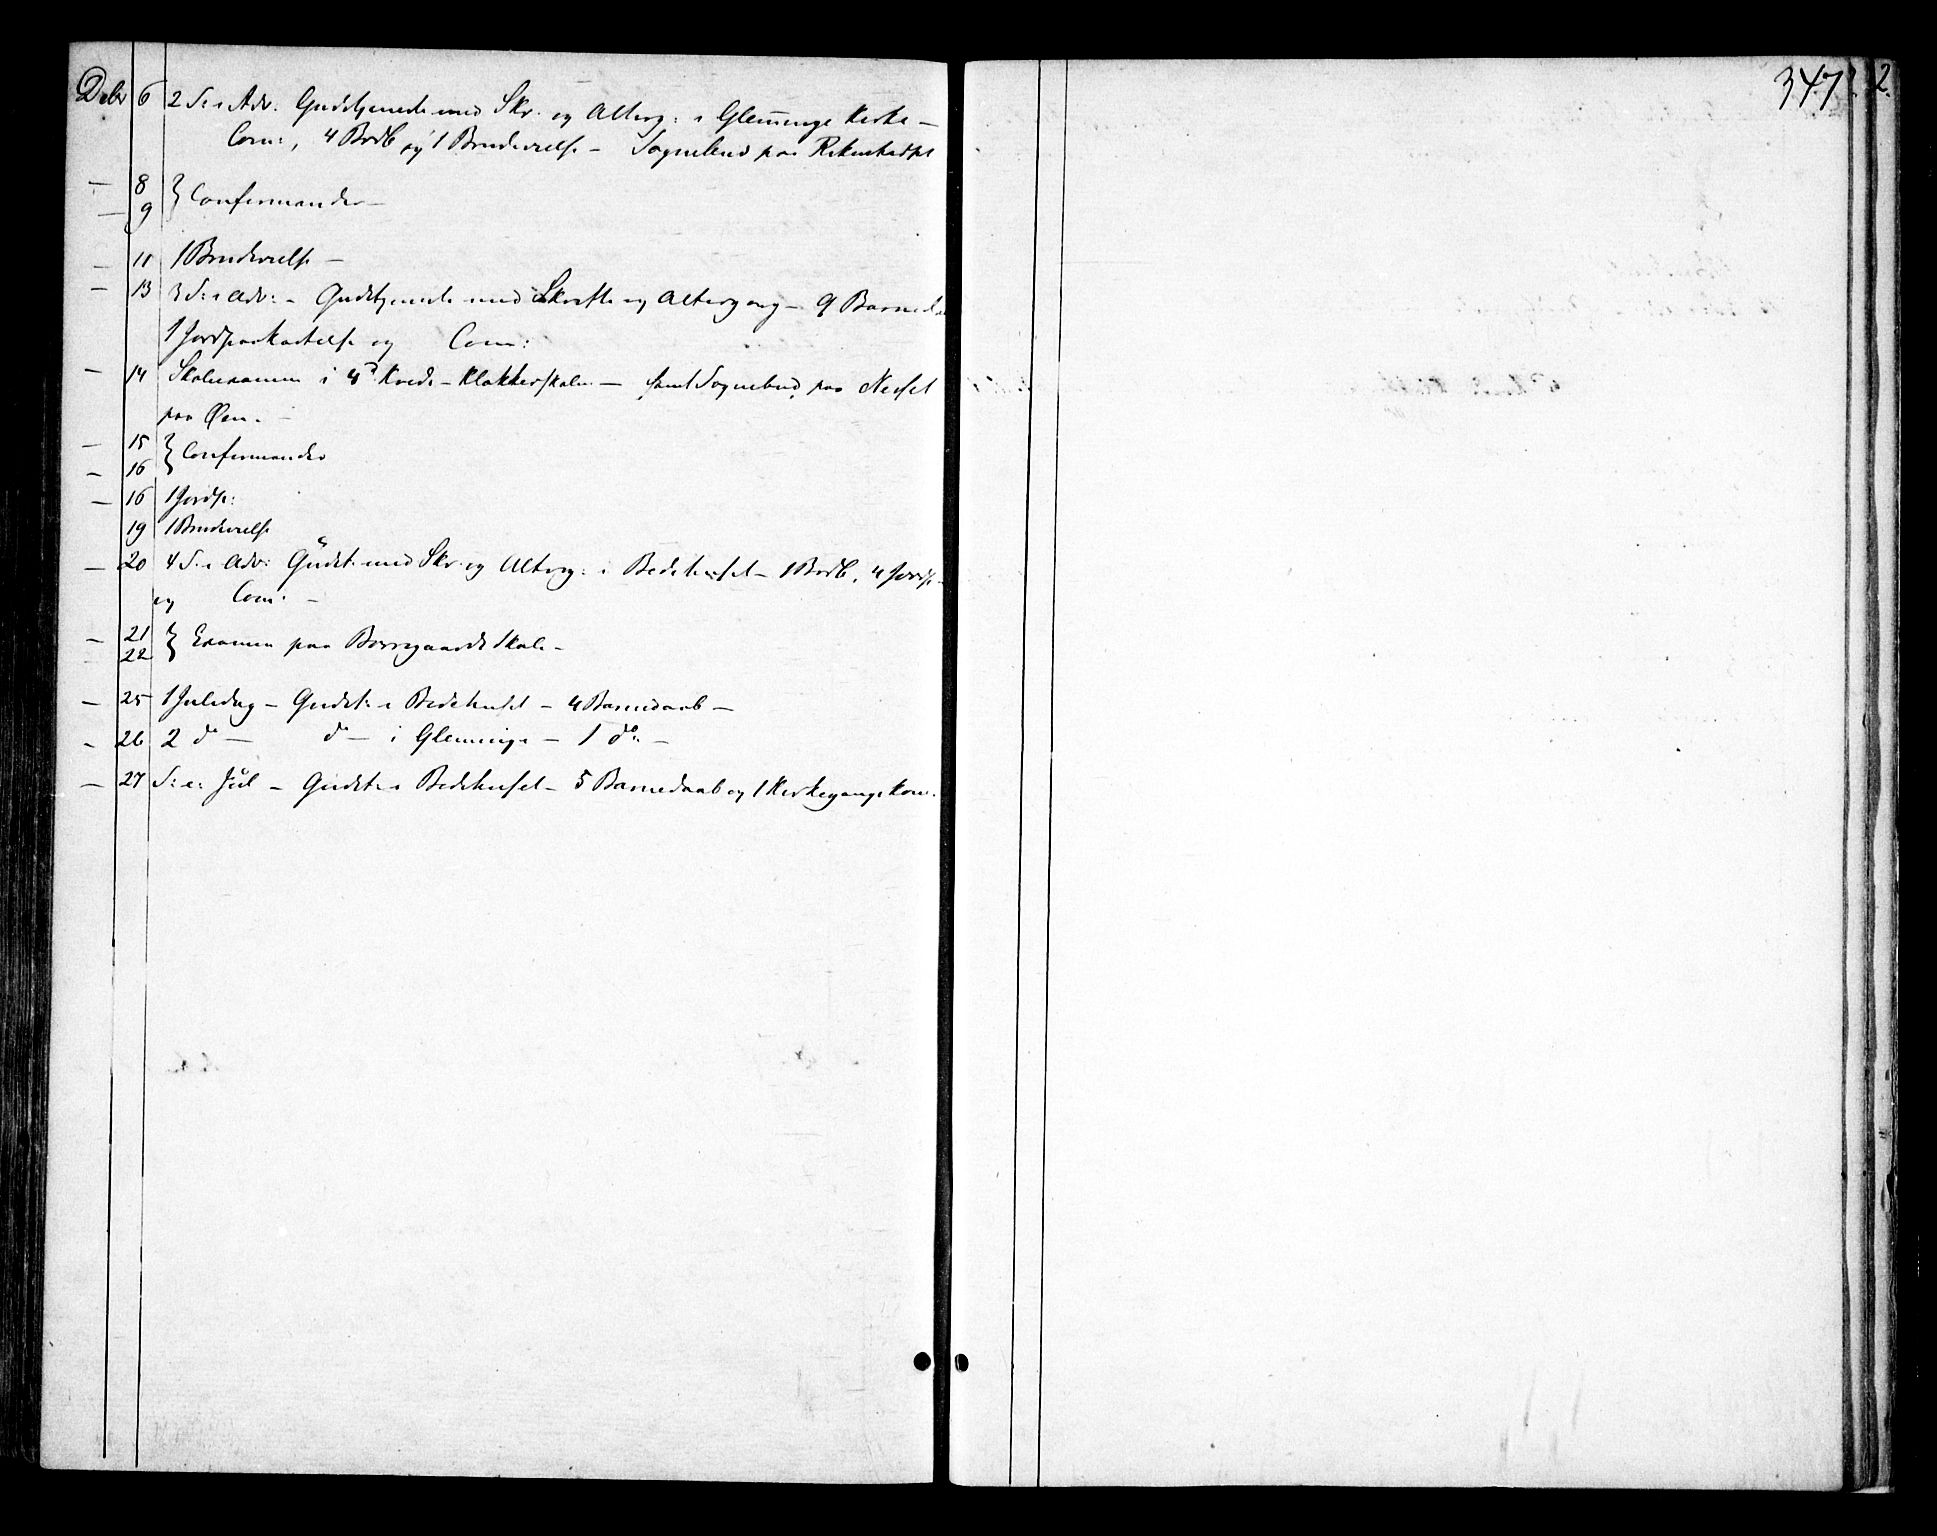 Debr 6 2 S: i Adv: Gudstjeneste med Skr. og Alterg: i Glemminge Kirke –
Com:, 4 Brdb og 1 Brudevielse – Sognebud paa
– 8 } Confirmander –
– 9
– 11 1 Brudevielse –
– 13 3 S: i Adv: – Gudstjeneste med Skrifte og Altergang – 9 Barned
1 Jordpaakastelse og Com:
– 14 Skoleexamen i 4d Kreds – Klokkerskolen – samt Sognebud paa Nesset
paa Øen. –
– 15 } Confirmander
– 16
– 16 1 Jordp:
19 1 Brudevielse
– 20 4 S: i Adv: Gudst: med Skr: og Alterg: i Bedehuset – 1 Brdb, 4 Jordp –
og Com: –
– 21 } Examen paa Borregaards Skole –
– 22
– 25 1 Juledag – Gudst: i Bedehuset – 4 Barnedaab –
– 26 2 do – do – i Glemminge – 1 do: –
– 27 S: e: Jul – Gudst: i Bedehuset – 5 Barnedaab og 1 Kirkegangskone.
347
2.